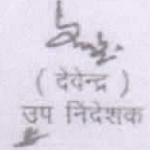 ( देवेन्द्र )
उप निदेशक